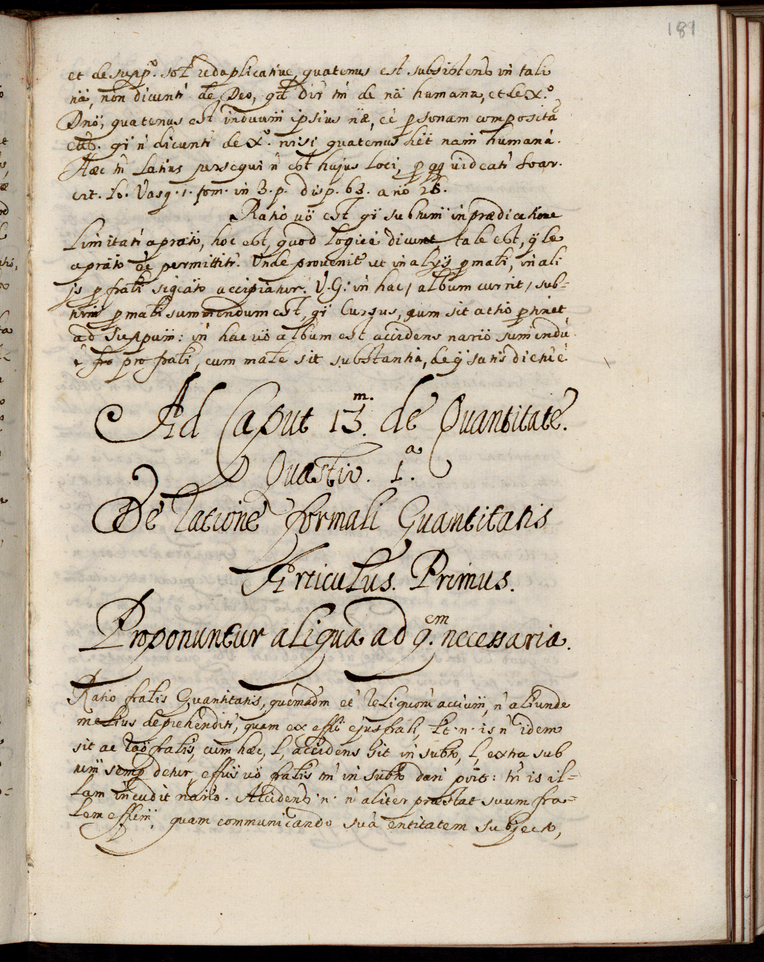 181
et de supp.º sol reduplicative, quatenus est subsistens in tali
nã, non dicunt de Deo, qd dir tñ de nã humana, et de X.º
Dnõ, quatenus est induum ipsius næ, eê psonam composita
gi ñ dicunti de X.º nisi quatenus het nam humaná.
Hæc tñ latius persequi ñ est hujus loci, p qq uideati Soar.
Vasq. 1. tom. in 3. p. disp. 63. a nõ 28.
Ratio uõ est gi subtum in prædicatione
Limitati a prato, hoc est, quod Logici dicunt tale est, q̃le
a prato eê permittitr. Unde provenit ut in alijs p mali, in ali
js p frali sigcato accipiatur. V.G. in hac, album currit, sub-
tum p mali summendum est, gi Cursus, qum sit actio ptinet
ad Supptum: in hac uõ album est accidens nario sumendũ
ê pro frali, cum male sit substantia, de q̃ satis dictũ ê
Ad Caput 13.m de Quantitate.
Quæstio. 1.a
De ratione formali Quantitatis
Articulus. Primus.
Proponuntur aliqua ad q.em necessaria.
Ratio fralis Quantitatis, quemadm et reliquoru accium, ñ aliunde
melius deprehenditr, quam ex effũ ejus frali, Et n. is ñ idem
sit ac rao fralis, cum hæc, l, accidens sit in subto, l, extra sub
tum semp detur, effũs uõ fralis tñ in subto dari pois: tñ is il-
lam includit nario. Accidens n. ñ aliter præstat suum fra-
lem effũm, quam communicando suã entitatem subjecto,